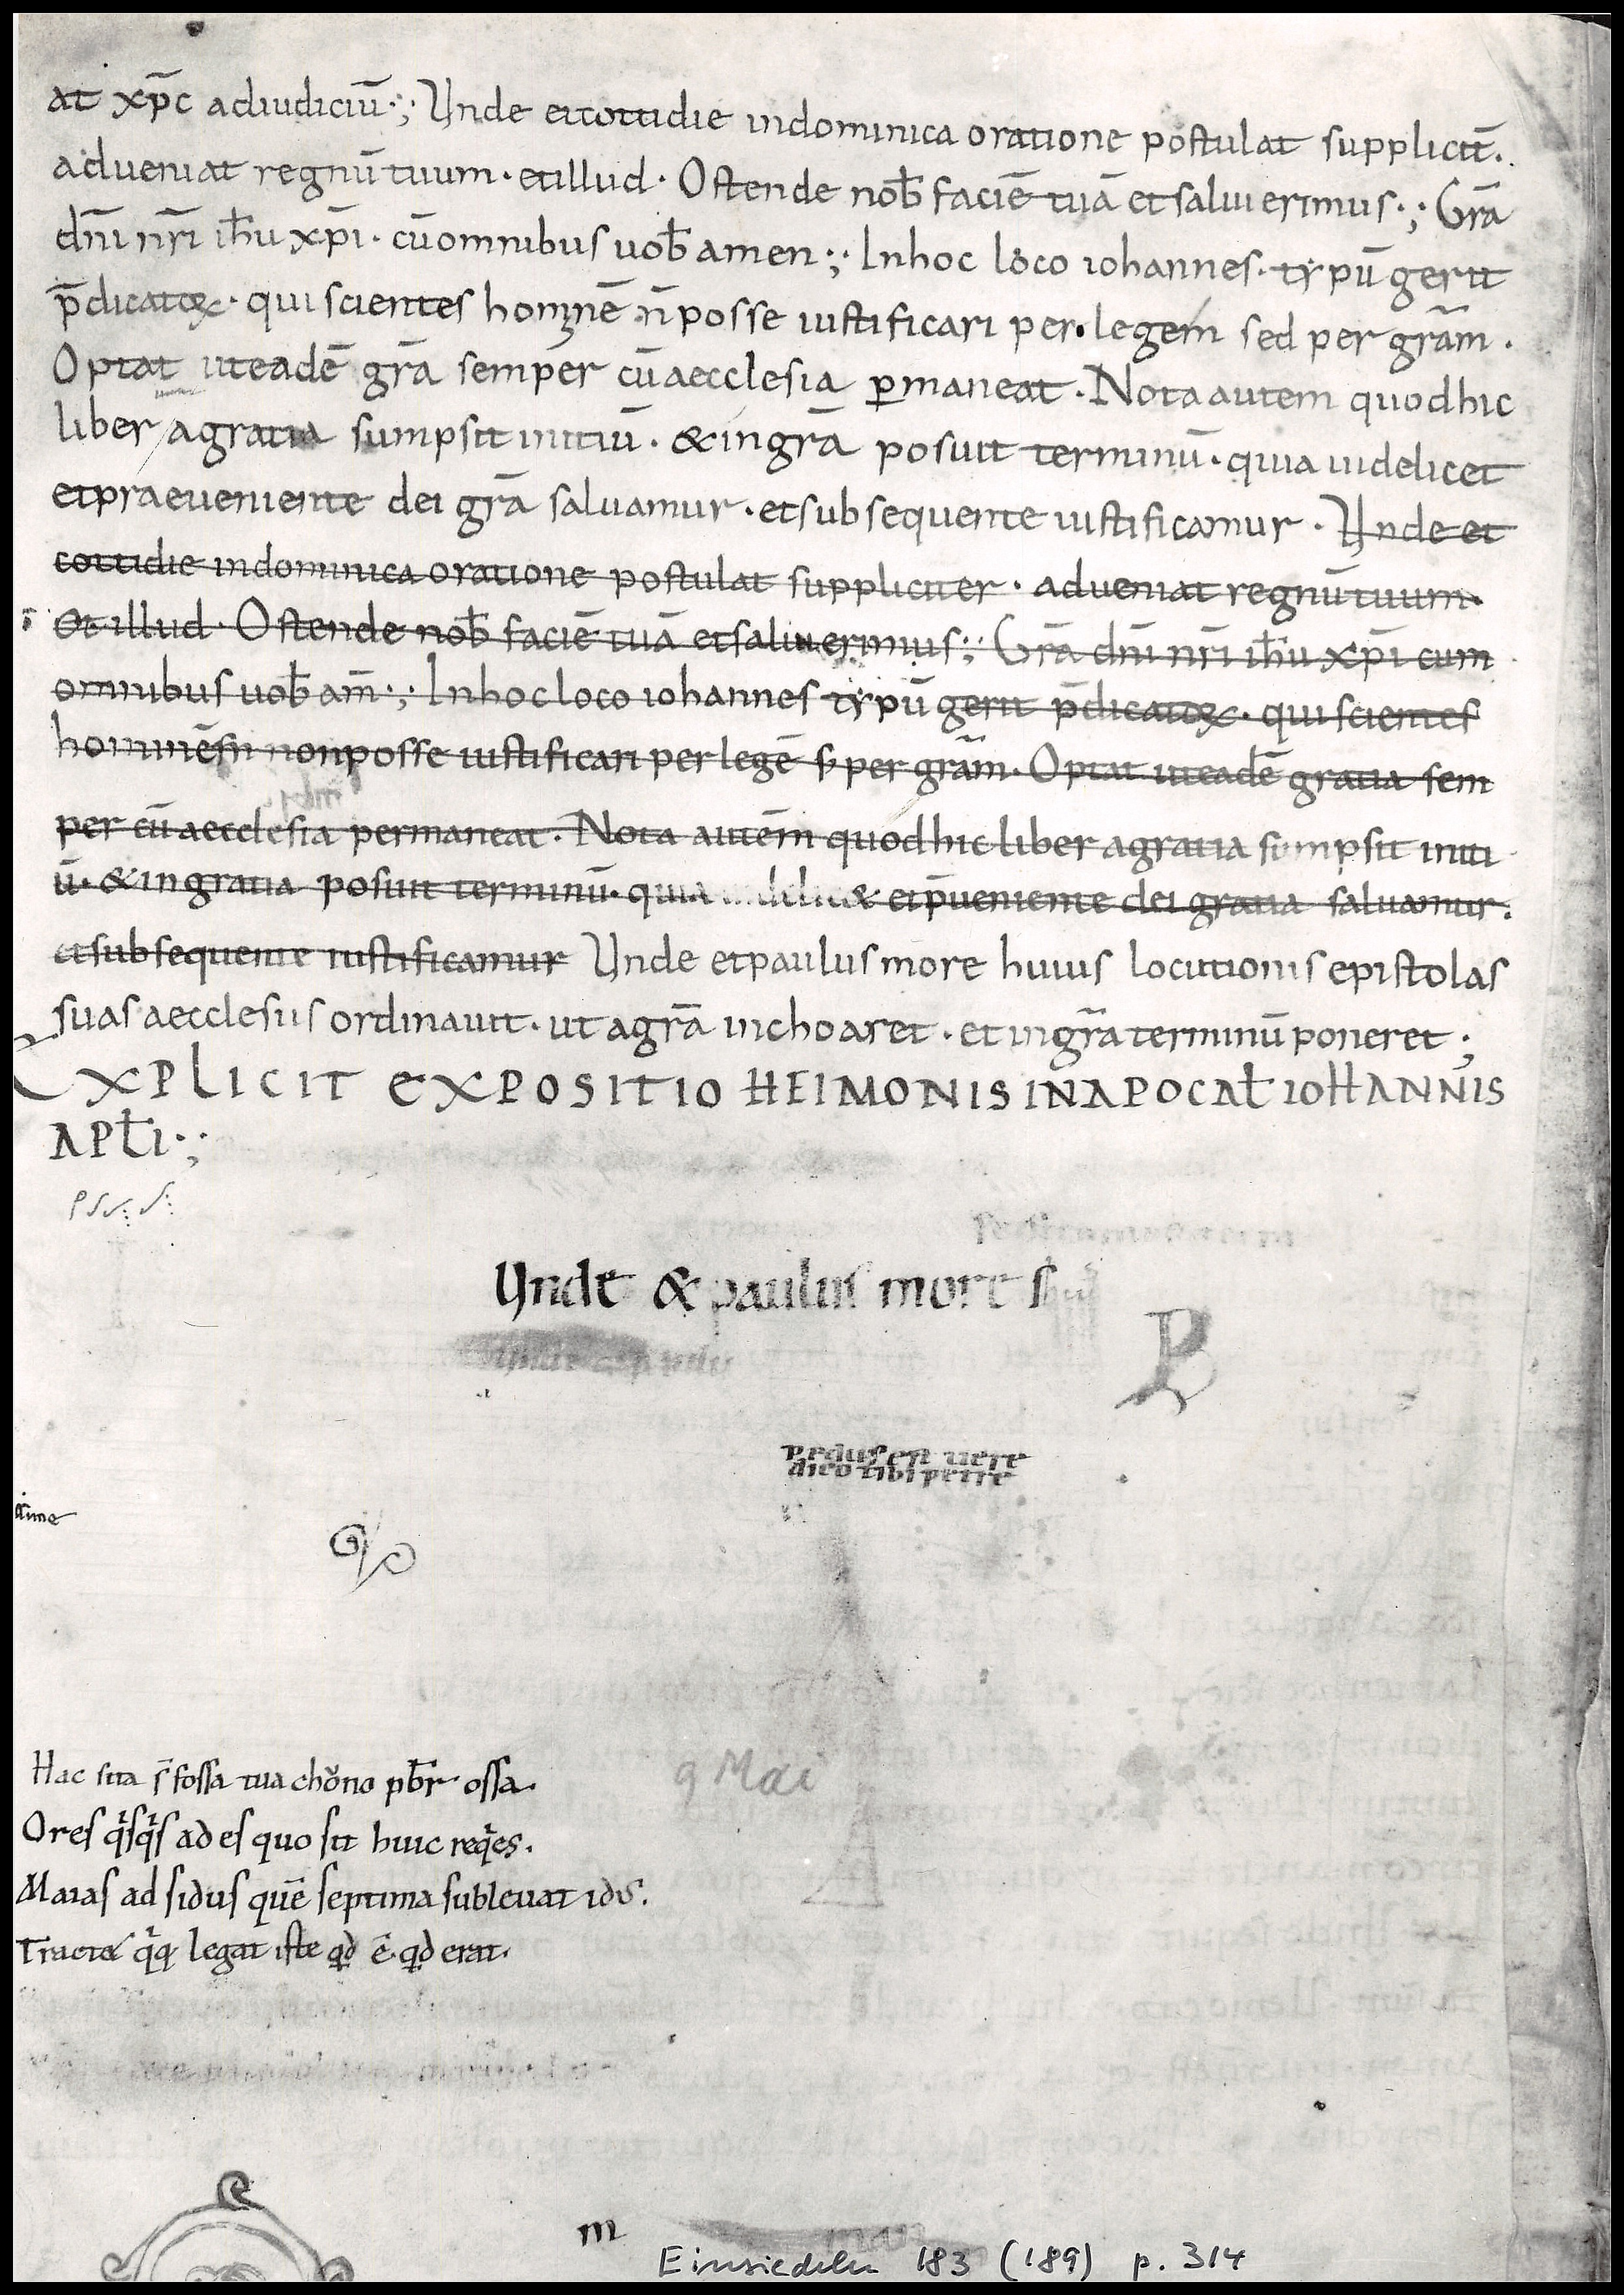 at xp̄c adiudiciū·;· Unde etcottidie indominica oratione postulat suppliciт̄.
adueniat regnū tuum · etillud · Ostende nob̄ faciē tuā etsalui erimus·;· Grā
dn̄i nr̄i ih̄u xp̄i · cū omnibus uob̄ amen·;· Inhoc loco iohannes · typū gerit
p̄dicatoꝝ · qui scientes hominē n̄ posse iustificari per legem sed per grām ·
Optat uteadē grā semper cū aecclesia ꝑmaneat · Nota autem quod hic
liber agratia sumpsit initiū · & ingrā posuit terminū · quia uidelicet
etpraeueniente dei grā saluamur · etsubsequente iustificamur · Unde et
cottidie indominica oratione postulat suppliciter · adueniat regnū tuum ·
Et illud · Ostende nob̄ faciē tuā etsalui erimus·;· Grā dn̄i nr̄i ih̄u xp̄i cum
omnibus uob̄ am̄·;· Inhoc loco iohannes typū gerit p̄dicatoꝝ · qui scientes
hominēm non posse iustificari per legē s; per grām · Optat uteadē gratia sem
per cū aecclesia permaneat · Nota autem quod hic liber agratia sumpsit initi
ū · & in gratia posuit terminū · quia uidelic& etp̄ueniente dei gratia saluamur ·
etsubsequente iustificamur Unde etpaulus more huius locutionis epistolas
suas aecclesiis ordinauit · ut agrā inchoaret · et ingrā terminū poneret ;
EXPLICIT EXPOSITIO HEIMONIS INAPOCAŁ IOHANNIS
APŁI·;·
Unde & paulus more
uere
dico tibi petre
Hac sita s̄ fossa tua chŏno pb̄r ossa.
Ores qͥsqͥs ad es quo sit huic reqͥes.
Maias ad sidus quē septima subleuat idus.
qͥqͥ legat iste qd̄ ē qd̄ erat.
9 Mai
m
Einsiedeln 183 (189) p. 314